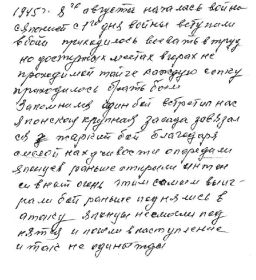 1945 г. 8го августа началась война
с Японией с 1го дня войны вступили
в бой приходилось воевать в труд
но доступных местах в горах не
проходимой тайге каждую сопку
приходилось брать боем
Запомнился один бой встретила нас
японская крупная засада завязал
ся жаркий бой благодаря
смелой находчивости опередили
японцев раньше открыли интен
сивный огонь этим самым выиг
рали бой раньше поднялись в
атаку японцы не смогли под
няться и пошли в наступление
и так не однажды